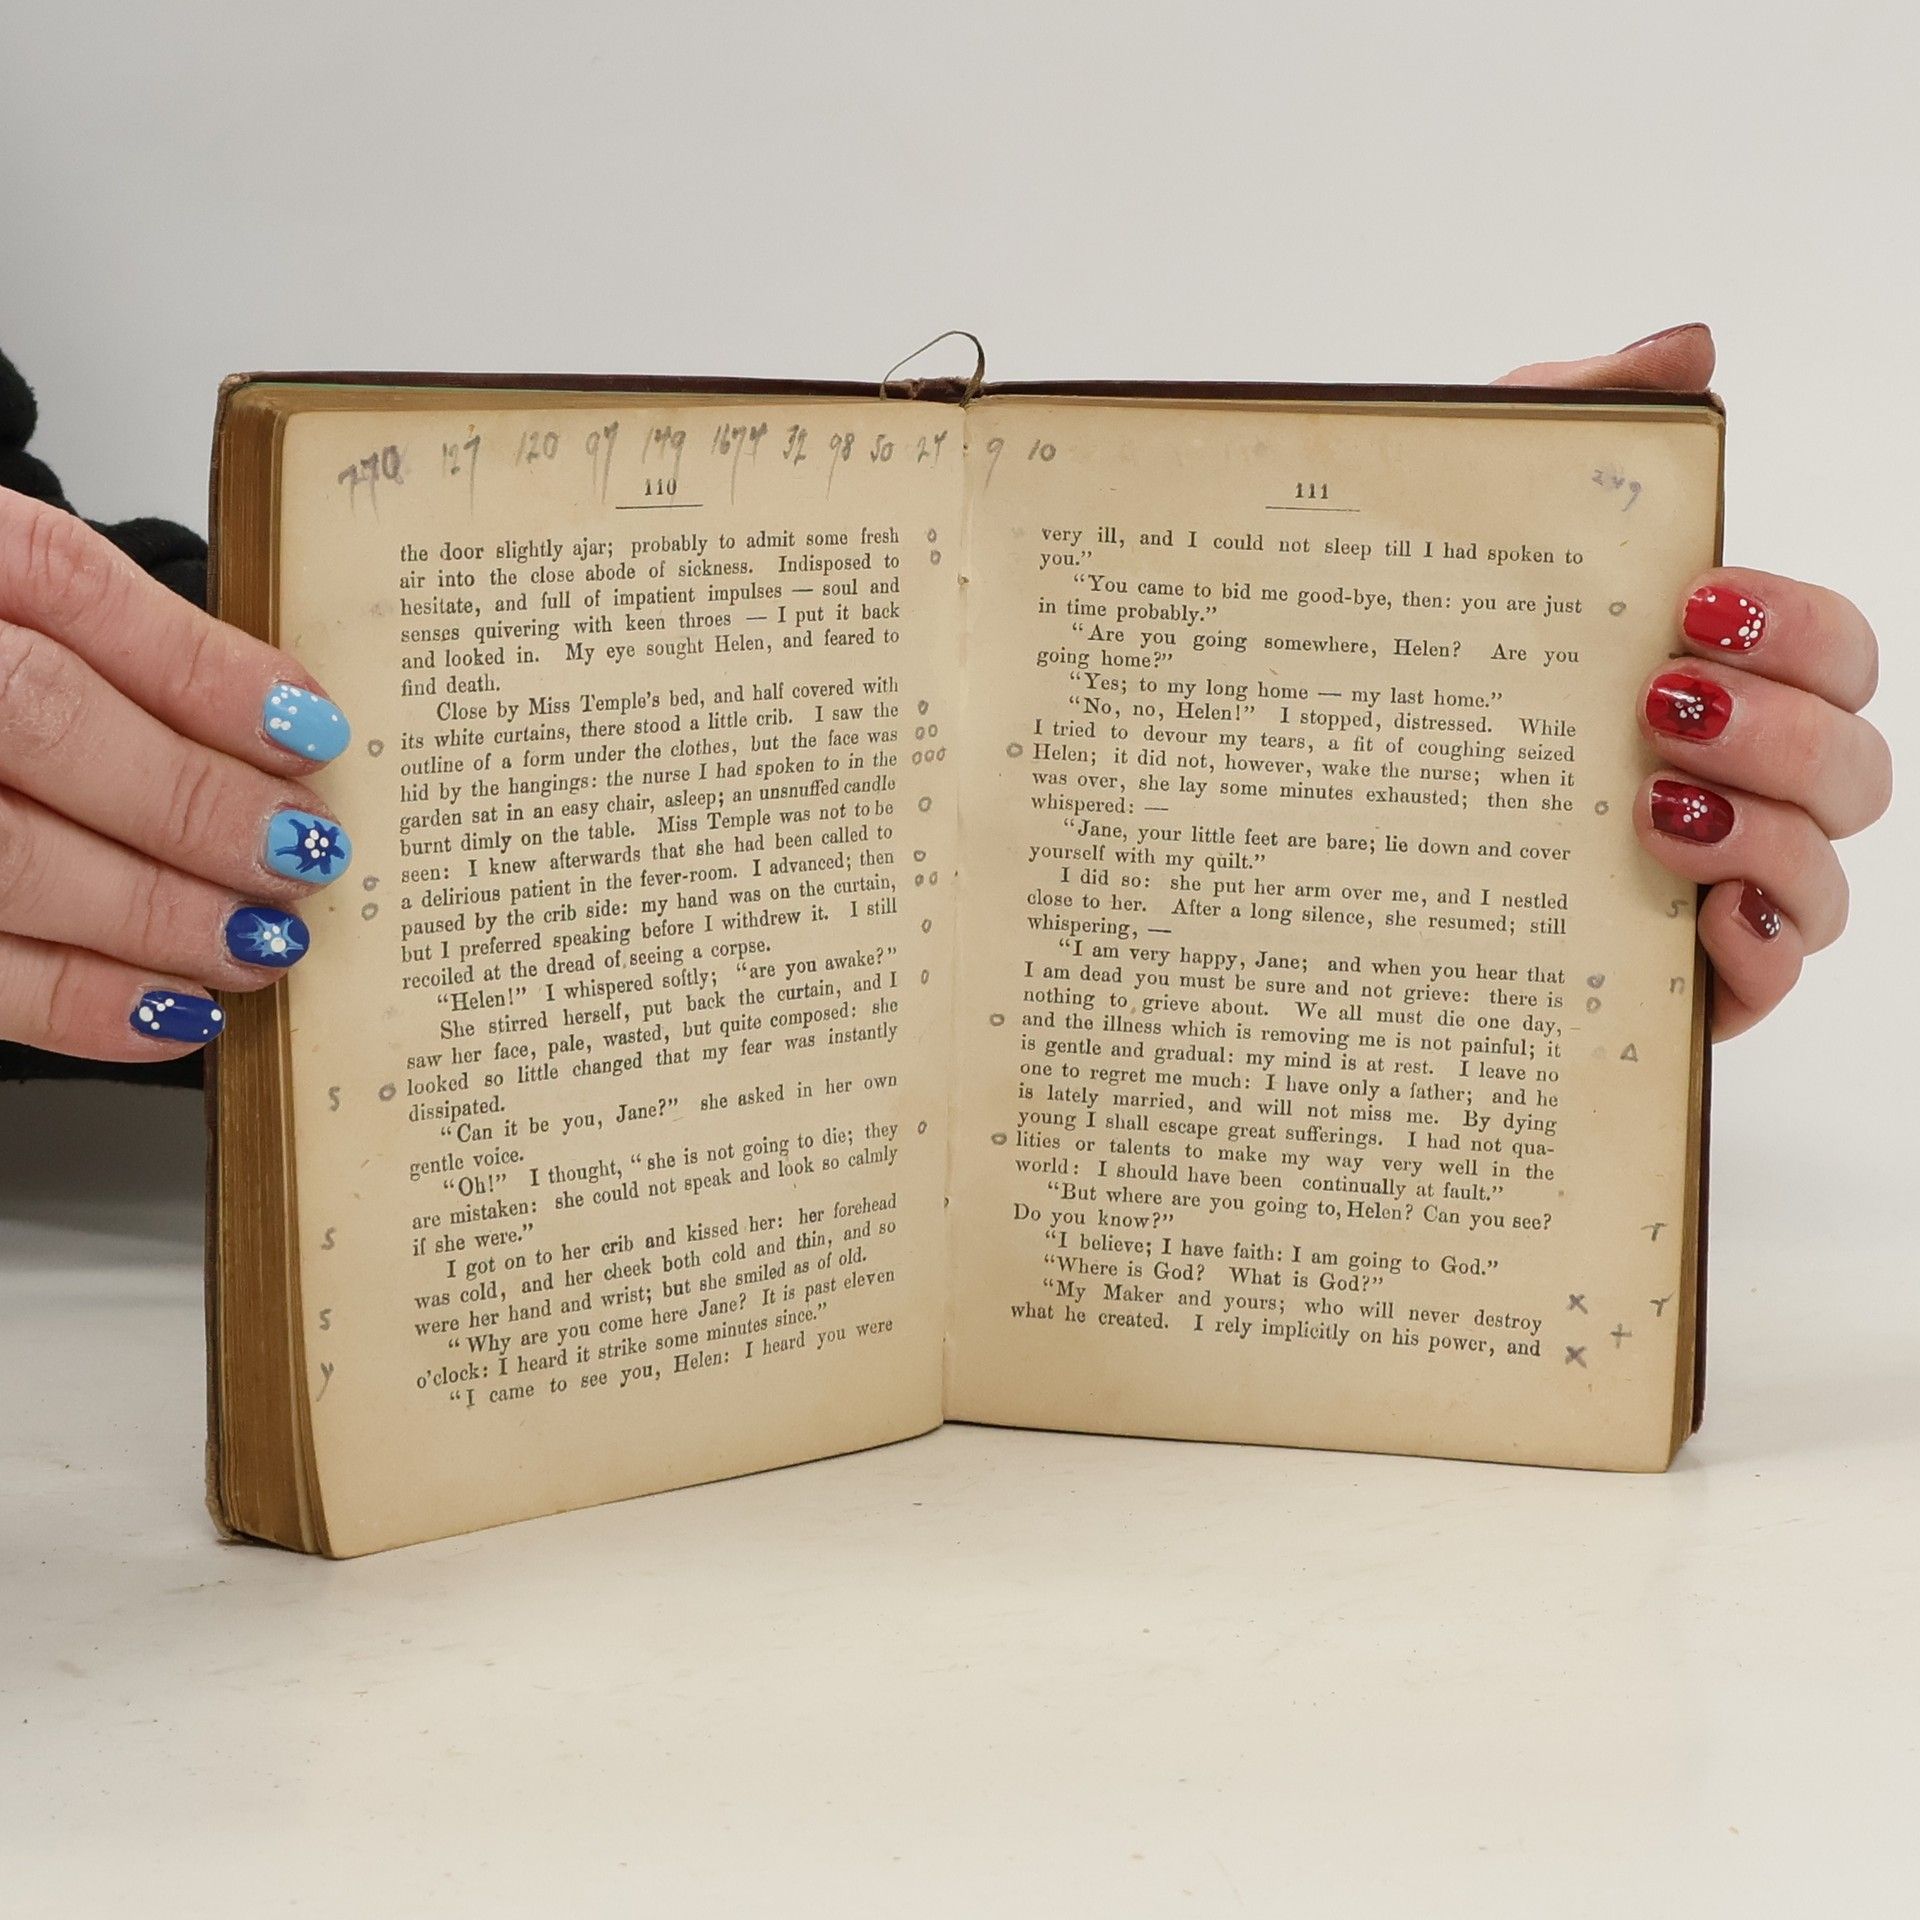 770 127 120 97 149 1674 32 98 50 27 : 9 10
110
the door slightly ajar; probably to admit some fresh o
air into the close abode of sickness. Indisposed to o
hesitate, and full of impatient impulses — soul and
senses quivering with keen throes — I put it back
and looked in. My eye sought Helen, and feared to
find death.
Close by Miss Temple's bed, and half covered with
its white curtains, there stood a little crib. I saw the o
o outline of a form under the clothes, but the face was oo
hid by the hangings: the nurse I had spoken to in the ooo
garden sat in an easy chair, asleep; an unsnuffed candle
burnt dimly on the table. Miss Temple was not to be o
seen: I knew afterwards that she had been called to
o a delirious patient in the fever-room. I advanced; then o
o paused by the crib side: my hand was on the curtain, oo
but I preferred speaking before I withdrew it. I still o
recoiled at the dread of seeing a corpse.
“Helen!” I whispered softly; “are you awake?”
She stirred herself, put back the curtain, and I o
saw her face, pale, wasted, but quite composed: she
s o looked so little changed that my fear was instantly
dissipated.
“Can it be you, Jane?” she asked in her own
gentle voice.
“Oh!” I thought, “she is not going to die; they o
are mistaken: she could not speak and look so calmly
s if she were.”
I got on to her crib and kissed her: her forehead
was cold, and her cheek both cold and thin, and so
s were her hand and wrist; but she smiled as of old.
“Why are you come here Jane? It is past eleven
y o'clock: I heard it strike some minutes since.”
“I came to see you, Helen: I heard you were
249
111
very ill, and I could not sleep till I had spoken to
you.”
“You came to bid me good-bye, then: you are just o
in time probably.”
“Are you going somewhere, Helen? Are you
going home?”
“Yes; to my long home — my last home.”
“No, no, Helen!” I stopped, distressed. While
I tried to devour my tears, a fit of coughing seized
o Helen; it did not, however, wake the nurse; when it
was over, she lay some minutes exhausted; then she o
whispered: —
“Jane, your little feet are bare; lie down and cover
yourself with my quilt.”
I did so: she put her arm over me, and I nestled s
close to her. After a long silence, she resumed; still
whispering, —
“I am very happy, Jane; and when you hear that o n
I am dead you must be sure and not grieve: there is o
nothing to grieve about. We all must die one day,
o and the illness which is removing me is not painful; it Δ
is gentle and gradual: my mind is at rest. I leave no
one to regret me much: I have only a father; and he
is lately married, and will not miss me. By dying
young I shall escape great sufferings. I had not qua-
o lities or talents to make my way very well in the
world: I should have been continually at fault.”
“But where are you going to, Helen? Can you see?
Do you know?” r
“I believe; I have faith: I am going to God.”
“Where is God? What is God?”
“My Maker and yours; who will never destroy x r
what he created. I rely implicitly on his power, and x +